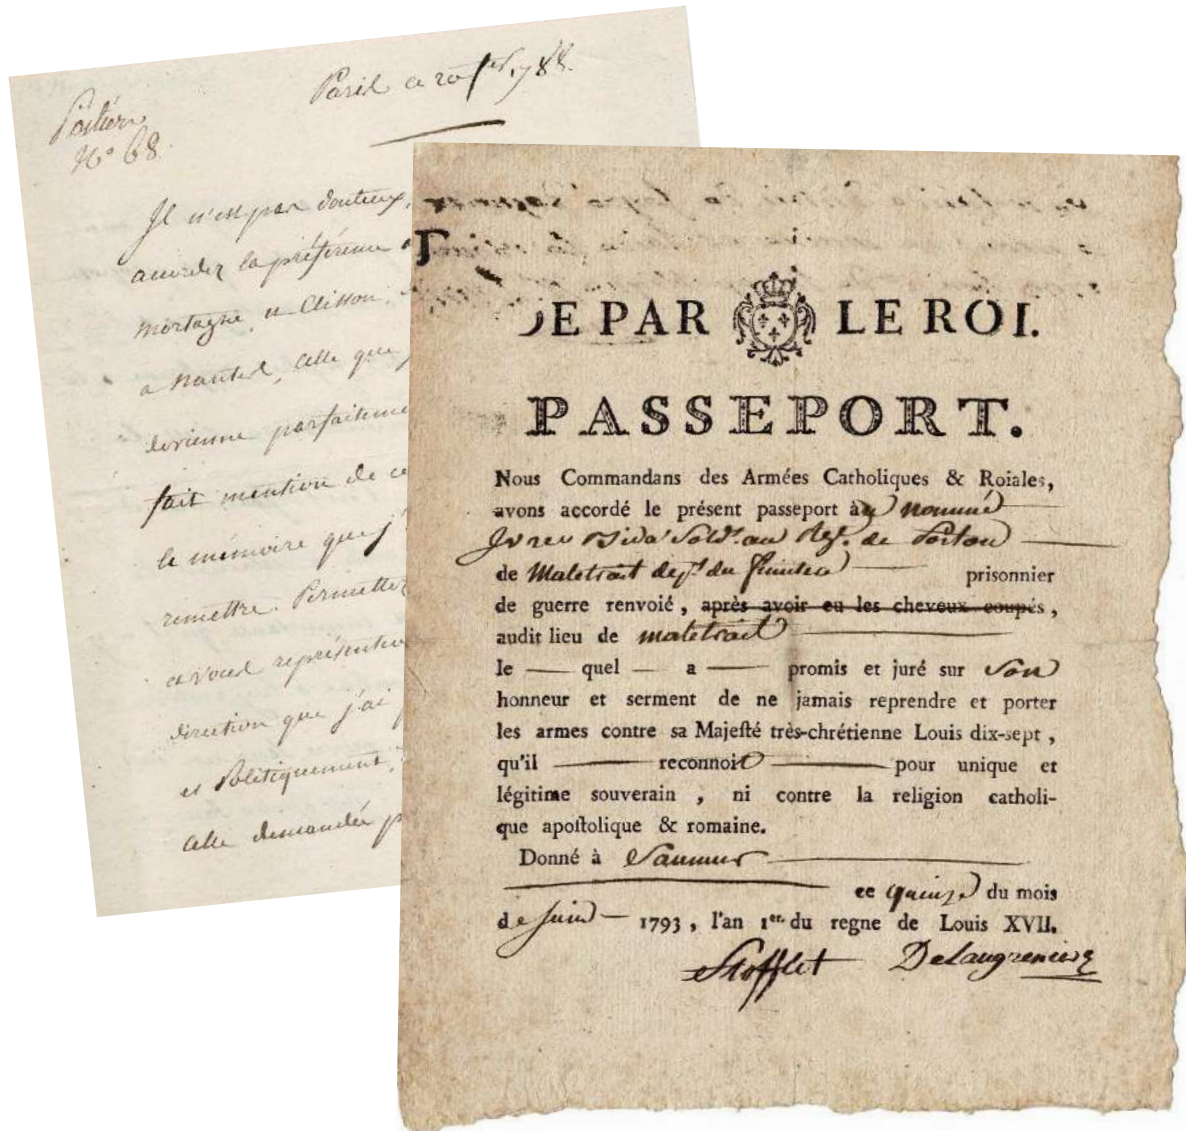 Paris ce 20 1788.
N° 68.
Il n'est pas douteux,
accorder la préférence
mortagne, et Clisson,
a Nantes, celle que
devienne parfaiteme
fait mention de ce
le mémoire que j'
remettre. Permettez
et vous représenter
direction que j'ai
et Politiquement,
celle demandée p
DE PAR LE ROI.
PASSEPORT.
Nous Commandans des Armées Catholiques & Roiales,
avons accordé le présent passeport au nommé
Sold. au Reg. de Poitou
de Maletrait du
prisonnier
de guerre renvoié, après avoir eu les cheveux coupés,
audit lieu de maletrait
le quel a promis et juré sur son
honneur et serment de ne jamais reprendre et porter
les armes contre sa Majesté très-chrétienne Louis dix-sept,
qu'il reconnoit pour unique et
légitime souverain, ni contre la religion catholi-
que apostolique & romaine.
Donné à Saumur
ce quinze du mois
de Juin 1793, l'an 1er. du regne de Louis XVII.
Stofflet Delaugreniere